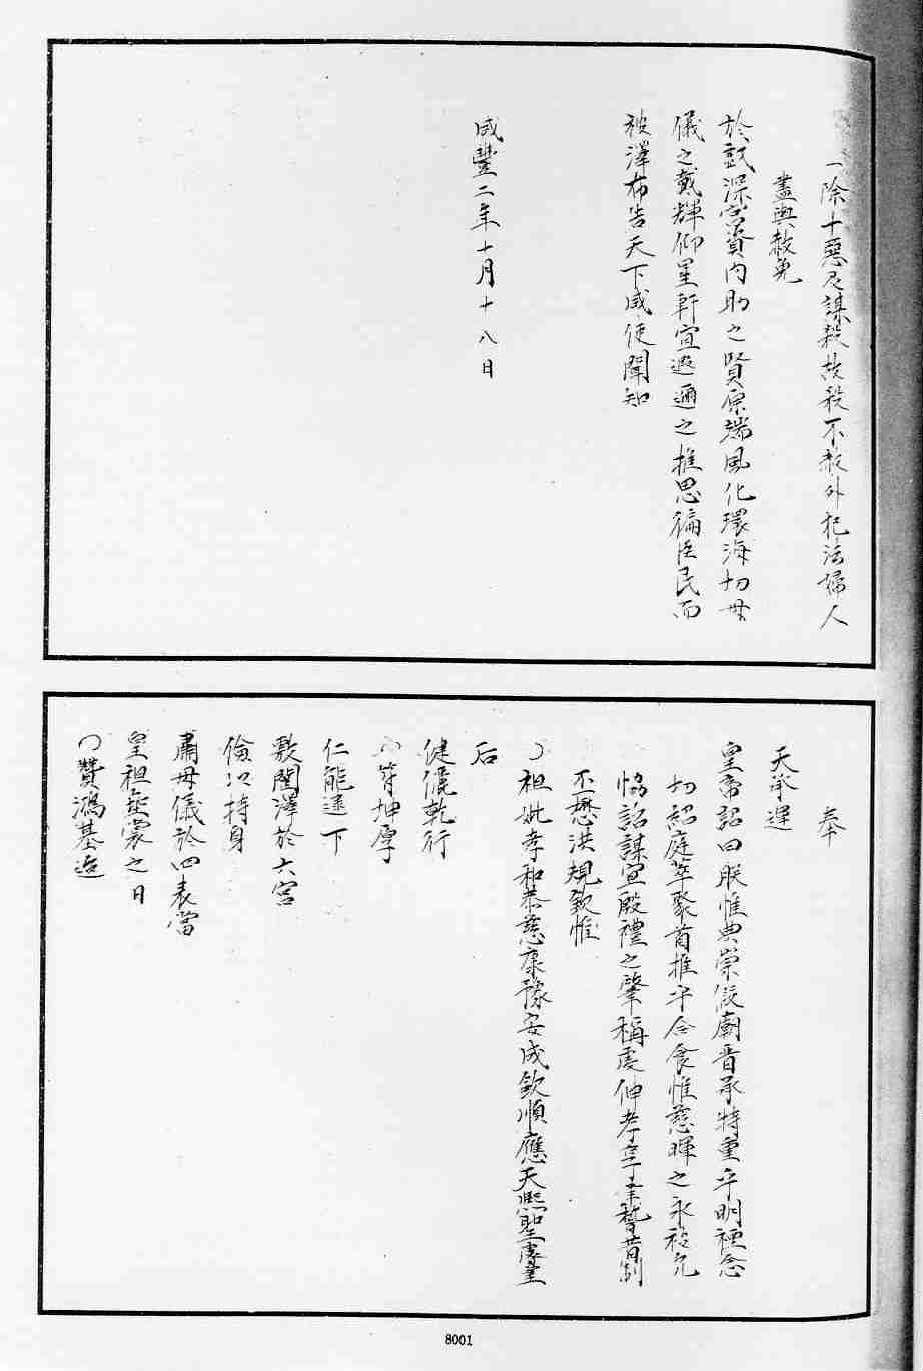 一除十惡及謀殺故殺不赦外犯法婦人
盡與赦免
於戲深宮資內助之賢原端風化環海切母
儀之戴輝仰星軒宣遐邇之推恩徧臣民而
被澤布告天下咸使聞知
咸豐二年十月十八日
奉
天承運
皇帝詔曰朕惟典崇假廟晉承特重乎明禋念
切紹庭萃聚首推乎合食惟慈暉之永裕允
協詒謀宣殷禮之肇稱虔伸孝享聿稽昔制
丕懋洪規欽惟
祖妣孝和恭慈康豫安成欽順應天熙聖睿皇
后
健儷乾行
符坤厚
仁能逮下
敷闓澤於六宮
儉以持身
肅母儀於四表當
皇祖垂裳之日
贊鴻基迨
8001